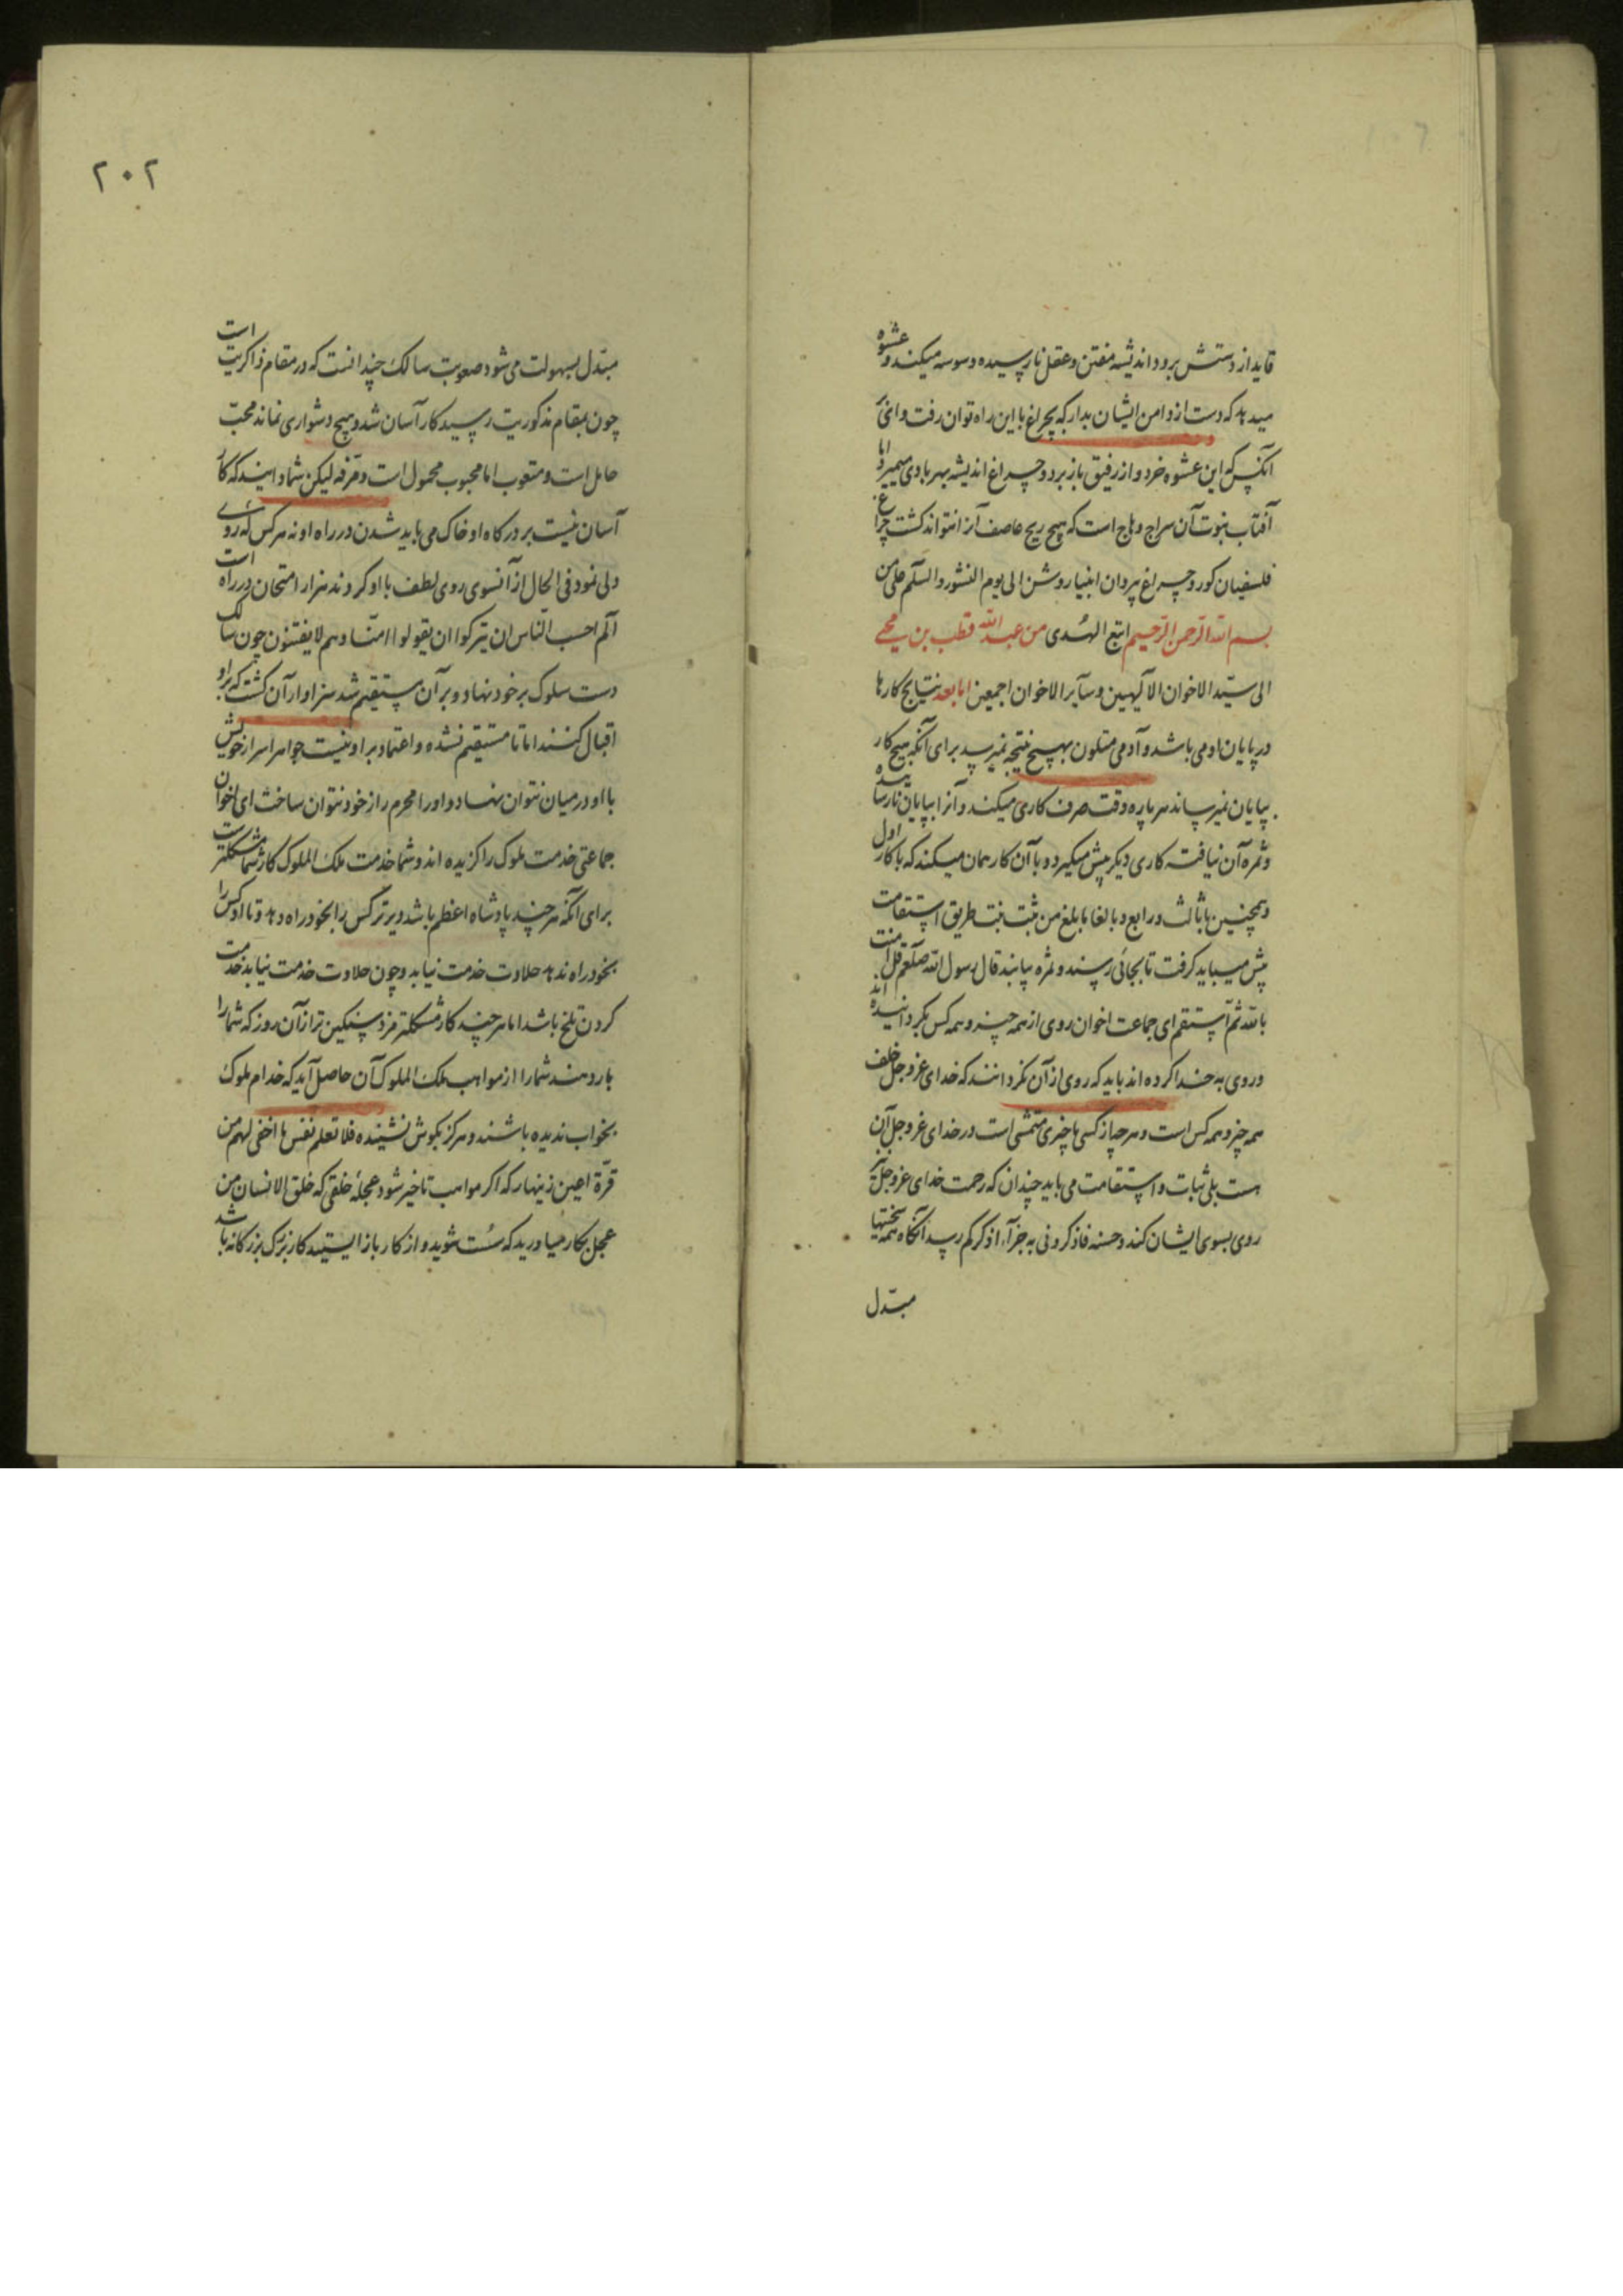 قاید از دستش برود اندیشه مفتن و عقل نارسیده وسوسه میکند و عشوه
میدهد که دست از دامن ایشان بدار که بچراغ ما این راه توان رفت وانّی
آنکس که این عشوه خرد و از رفیق باز برد و چراغ اندیشه بهر بادی میمیرد اما
آفتاب نبوت آن سراج وهاج است که هیچ ریح عاصف آنرا نتواند کشت چراغ
فلسفیان کور و چراغ پیروان انبیا روشن الی یوم النشور والسلم علی من
اتبع الهدی بسم الله الرحمن الرحیم من عبد الله قطب بن محیی
الی سید الاخوان الآلهیین و سآیر الاخوان اجمعین اما بعد نتایج کارها
در پایان او می باشد و آدمی متلون بهیچ نتیجه نمیرسد برای آنکه هیچ کار
بپایان نمیرساند هر پاره وقت صرف کاری میکند و آنرا بپایان نارسانیده
و ثمره آن نیافته کاری دیگر پیش میگیرد و با آن کار همان میکند که با کار اول
و همچنین با ثالث و رابع و بالغا ما بلغ من ثبت نبت طریق استقامت
پیش میباید گرفت تا بجائی رسند و ثمره یابند قال رسول الله صلعم قل آمنت
بالله ثم استقم ای جماعت اخوان روی از همه چیز و همه کس بگردانیده اند
و روی به خدا کرده اند باید که روی از آن نگردانند که خدای عز و جل خلف
همه چیز و همه کس است و هر چه از کسی یا چیزی متمشی است در خدای عز و جل آن
هست بلی ثبات و استقامت می باید چندان که رحمت خدای عز و جل
روی بسوی ایشان کند و حسنه فاذکرونی به جزآء اذکرکم رسد آنگاه همه سختیها
مبدل
۲۰۲
مبدل بسهولت می شود صعوبت سالک چندانست که در مقام ذاکریت است
چون بمقام مذکوریت رسید کار آسان شد و هیچ دشواری نماند محبّ
حامل است و متعوب اما محبوب محمول است و مرفه لیکن شما دانید که کار
آسان نیست بر درگاه او خاک می باید شدن در راه او نه هر کس که روی
ولی نمود فی الحال از آنسوی روی لطف با او کردند هزار امتحان در راه است
الم احسب الناس ان یترکوا ان یقولوا امنّا وهم لا یفتنون چون سالک
دست سلوک بر خود نهاد و بر آن مستقیم شد سزاوار آن گشت که براو
اقبال کنند اما تا مستقیم نشده و اعتماد بر او نیست جواهر اسرار خویش
با او در میان نتوان نهاد و او را محرم راز خود نتوان ساخت ای اخوان
جماعتی خدمت ملوک را گزیده اند و شما خدمت ملک الملوک کار شما مشکلتر است
برای آنکه هر چند پادشاه اعظم باشد دیرتر کس را بخود راه دهد و تا او کس را
بخود راه ندهد حلاوت خدمت نیابد و چون حلاوت خدمت نیابد خدمت
کردن تلخ باشد اما هر چند کار مشکلتر مزد سنگین تر از آن روز که شما را
بار دهند شما را از مواهب ملک الملوک آن حاصل آید که خدام ملوک
بخواب ندیده باشند و هرگز بگوش نشنیده فلا تعلم نفس ما اخفی لهم من
قرّة اعین زینهار که اگر مواهب تاخیر شود عجلهٔ خلقی که خلق الانسان من
عجل بکار میاورید که سُست شوید و از کار باز ایستید کار بزرگ بزرگانه باشد